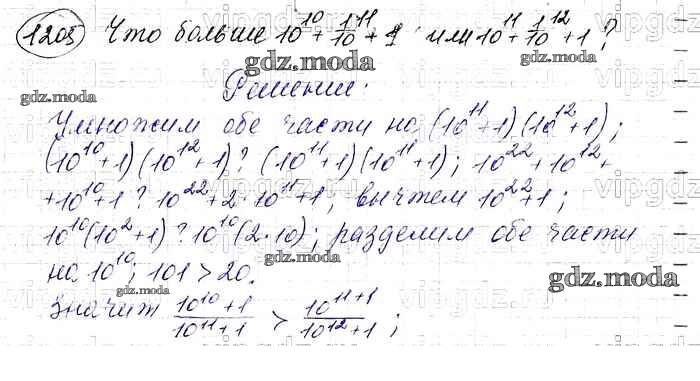 1205 Что больше 10^10 + 1/10^11 + 1 или 10^11 + 1/10^12 + 1?
gdz.moda
gdz.moda
Решение:
gdz.moda
Умножим обе части на (10^11+1)(10^12+1);
(10^10+1)(10^12+1) ? (10^11+1)(10^11+1); 10^22+10^12+
+10^10+1 ? 10^22+2·10^11+1, вычтем 10^22+1;
10^10(10^2+1) ? 10^10(2·10); разделим обе части
на 10^10; 101 > 20.
gdz.moda
gdz.moda
Значит (10^10+1)/(10^11+1) > (10^11+1)/(10^12+1);